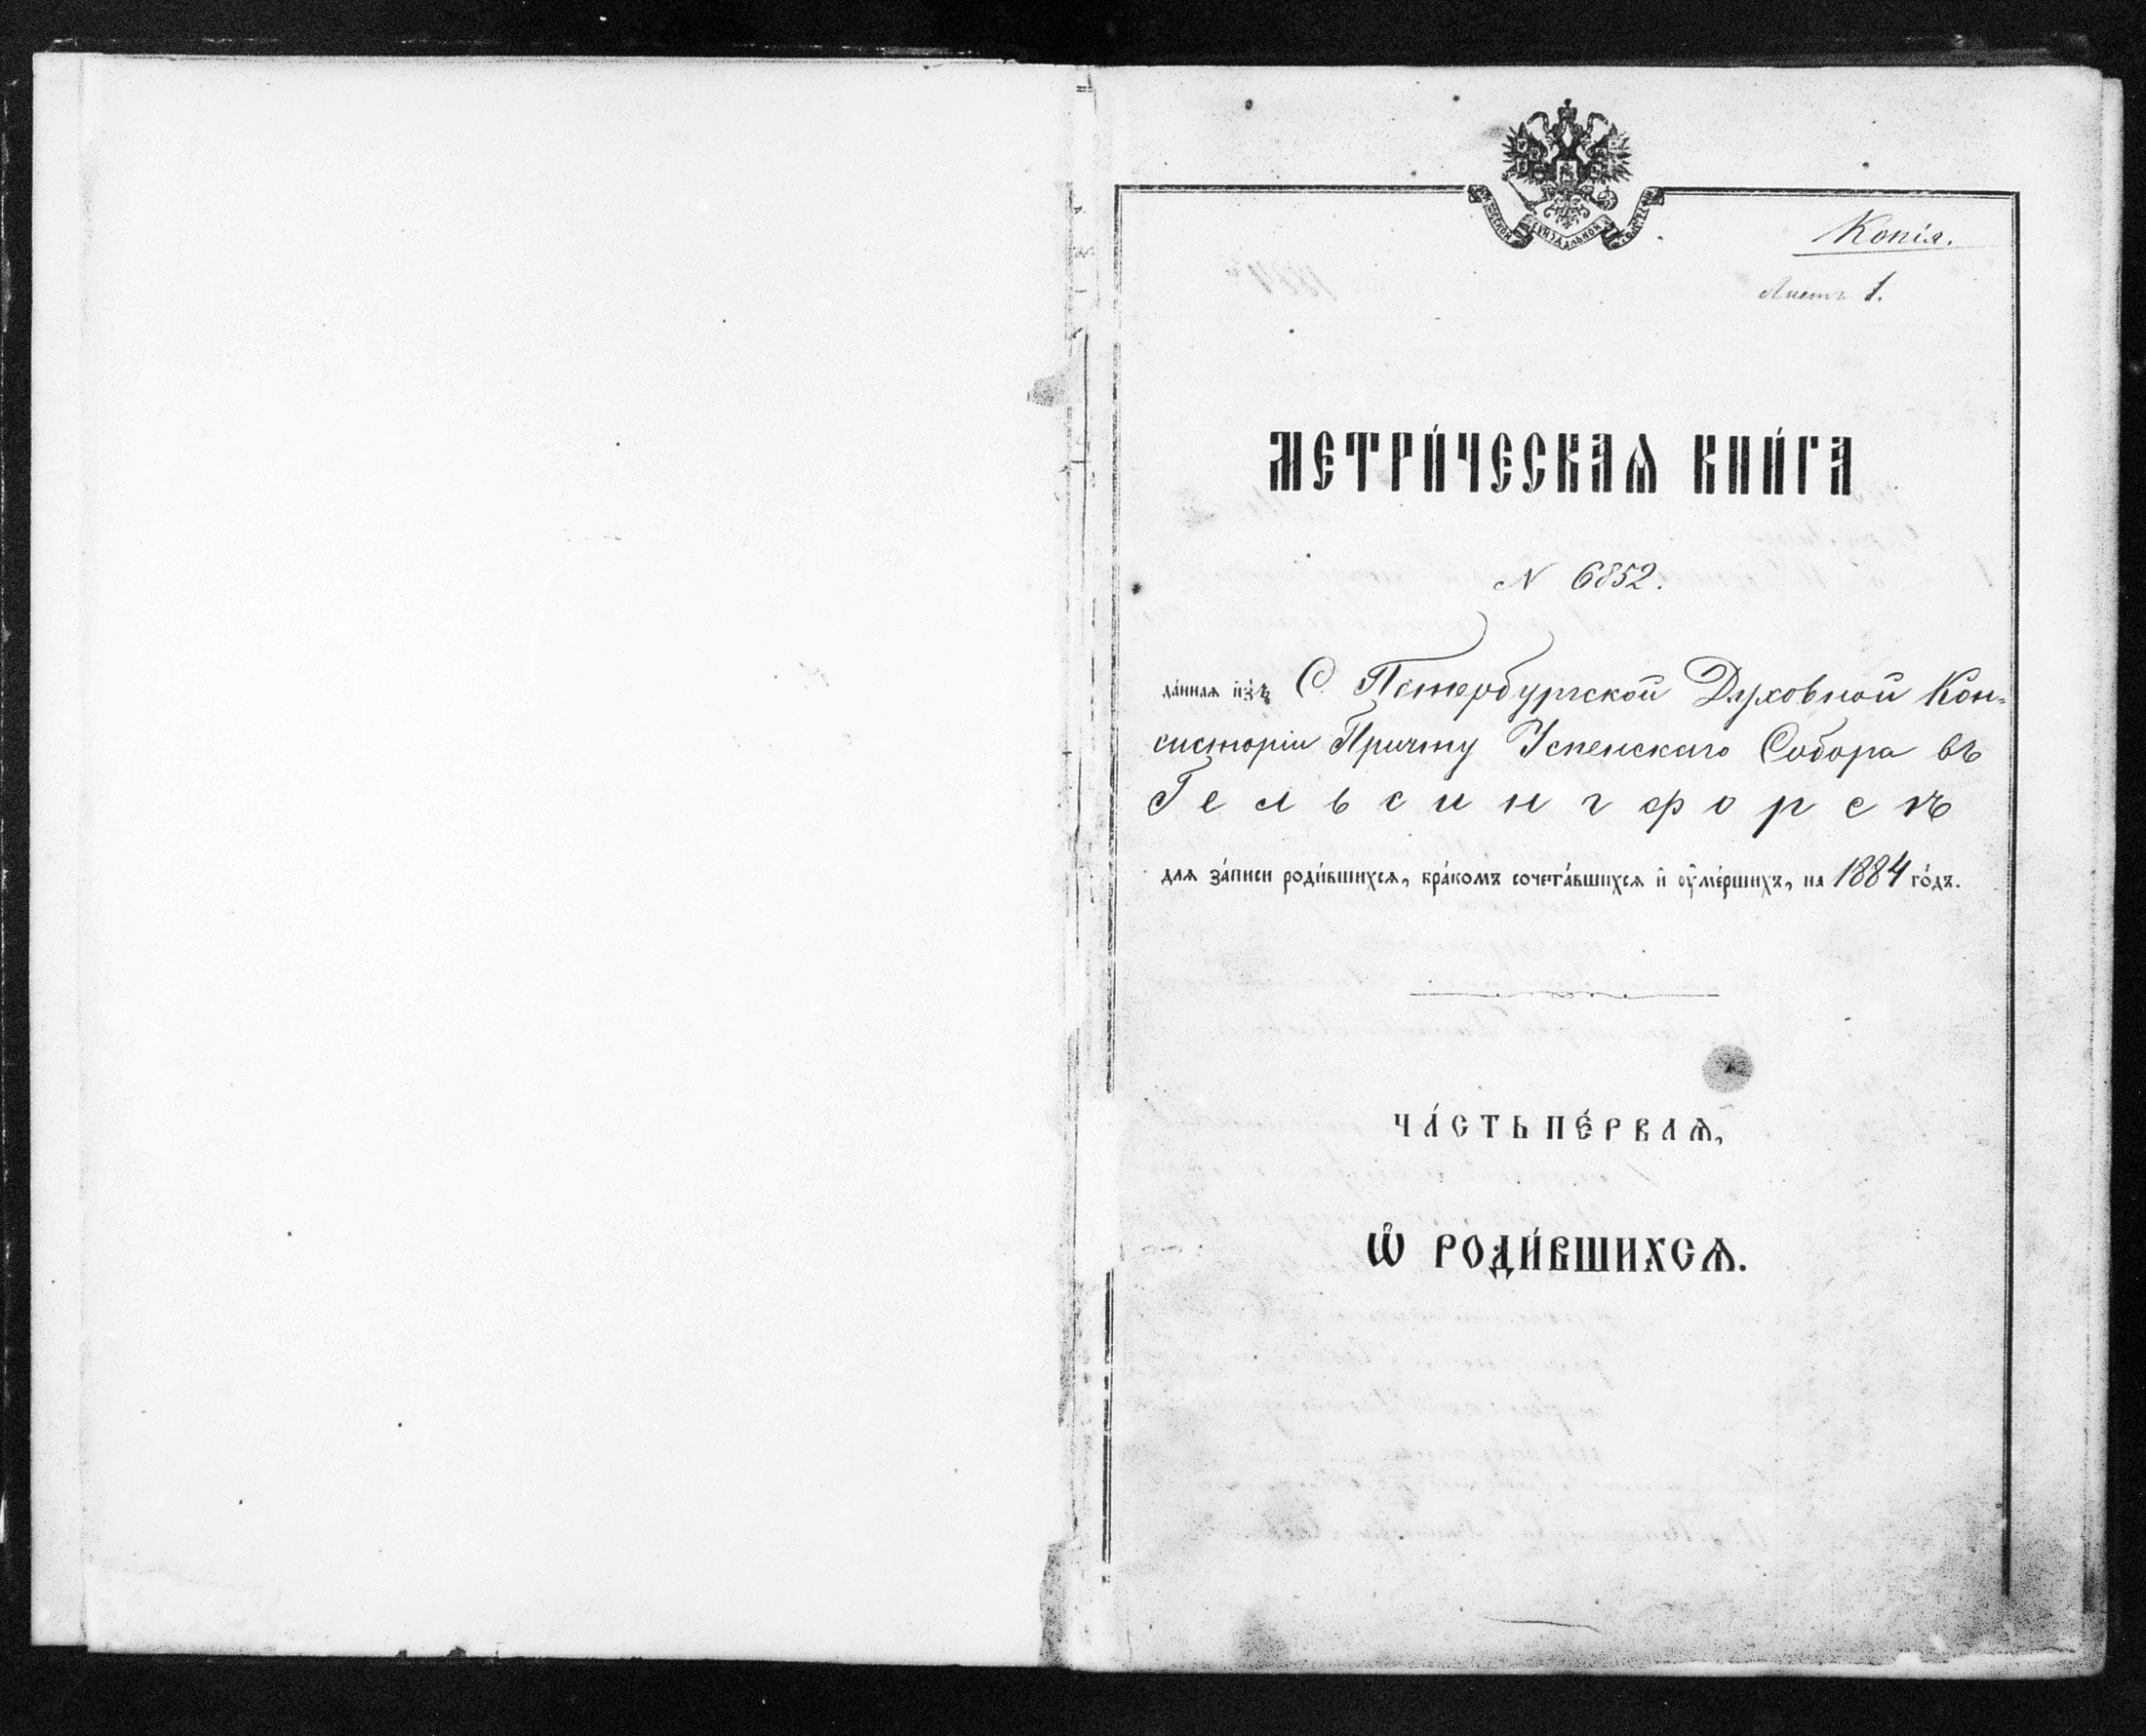 Копія.
Листъ 1.
МЕТРИ́ЧЕСКАѦ КНИ́ГА
N 6852.
да́нная и҆зъ С. Петербургской Духовной Кон-
систоріи Причту Успенскаго Собора въ
Гельсингфорсѣ
для за́писи роди́вшихся, бра́комъ сочета́вшихся и҆ ᲂу҆ме́ршихъ, на 1884 го́дъ.
ЧА́СТЬ ПЕ́РВАѦ,
Ѽ РОДИ́ВШИХСѦ.